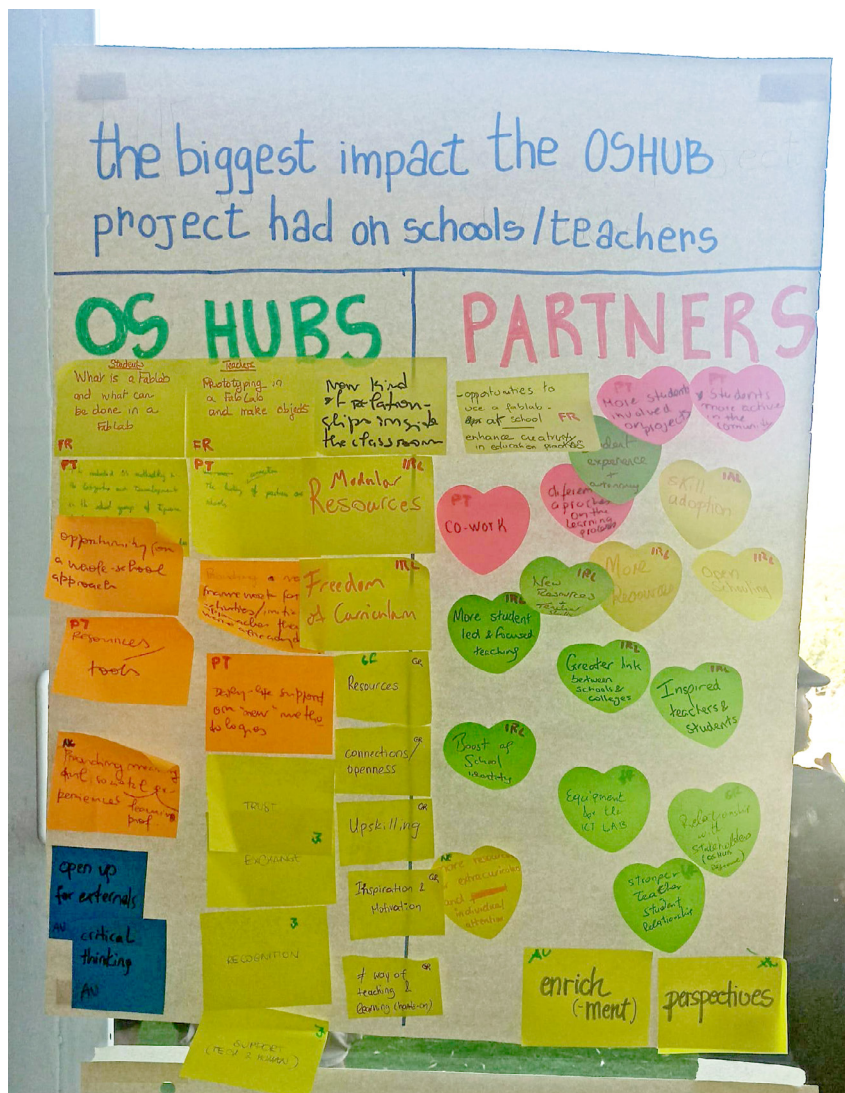 the biggest impact the OSHUB
project had on schools/teachers
OS HUBS
Students
What is a Fablab
and what can
be done in a
FabLab
FR
Teachers
Prototyping in
a FabLab
and make objects
FR
New kind
of relation-
ships inside
the classroom
PT
PT
IRL
Modular
Resources
opportunity for
a whole-school
approach
framework for
IRL
Freedom
of Curriculum
PT
Resources
tools
PT
support
on "new" metho
dologies
GR
Resources
GR
connections/
openness
TRUST
Upskilling
EXCHANGE
GR
Inspiration &
Motivation
open up
for externals
AU
critical
thinking
AU
RECOGNITION
GR
# way of
teaching &
learning (hands-on)
SUPPORT
(TECH & HUMAN)
PARTNERS
-opportunities to
use a fablab-
at school
FR
enhance creativity
in education practices
PT
More students
involved
on projects
PT
Students
more active
in the
community
experience
+
autonomy
different
approaches
on the
learning
process
IRL
skill
adoption
PT
CO-WORK
IRL
New
Resources
IRL
More
Resources
IRL
Open
Schooling
IRL
More student
led & focused
teaching
IRL
Greater link
between
schools &
colleges
IRL
Inspired
teachers &
students
IRL
Boost of
School
identity
Equipment
for the
ICT LAB
GR
Relationship
with
stakeholders
more resources
extracurricular
and
individual
attention
stronger
Teacher
Student
Relationship
AU
enrich
(-ment)
perspectives